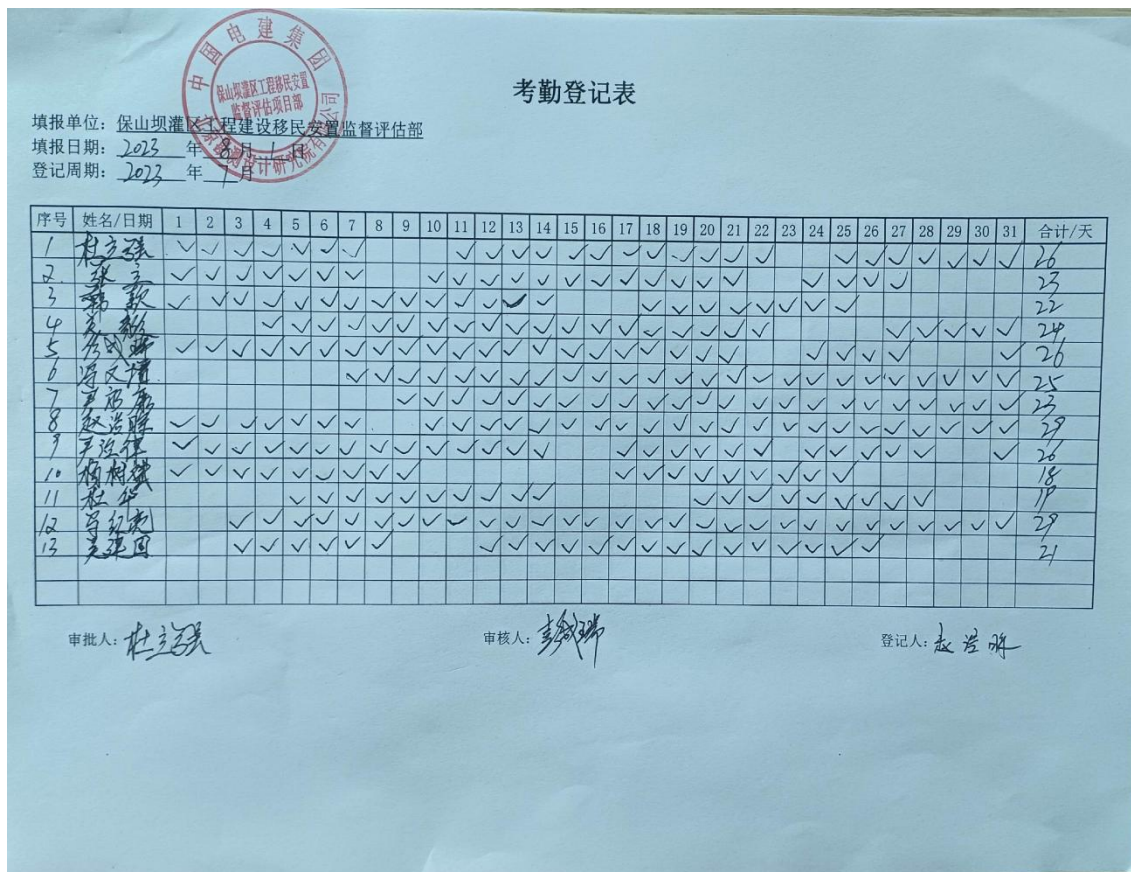 中国电建集团北京勘测设计研究院有限公司
保山坝灌区工程移民安置
监督评估项目部
考勤登记表
填报单位：保山坝灌区工程建设移民安置监督评估部
填报日期： 2023 年 8 月 1 日
登记周期： 2023 年 月
序号 姓名/日期 1 2 3 4 5 6 7 8 9 10 11 12 13 14 15 16 17 18 19 20 21 22 23 24 25 26 27 28 29 30 31 合计/天
1 杜立强 ✓ ✓ ✓ ✓ ✓ ✓ ✓ ✓ ✓ ✓ ✓ ✓ ✓ ✓ ✓ ✓ ✓ ✓ ✓ ✓ ✓ ✓ ✓ ✓ ✓ ✓ 26
2 张 ✓ ✓ ✓ ✓ ✓ ✓ ✓ ✓ ✓ ✓ ✓ ✓ ✓ ✓ ✓ ✓ ✓ ✓ ✓ ✓ ✓ ✓ ✓ 23
3 ✓ ✓ ✓ ✓ ✓ ✓ ✓ ✓ ✓ ✓ ✓ ✓ ✓ ✓ ✓ ✓ ✓ ✓ ✓ ✓ ✓ ✓ 22
4 ✓ ✓ ✓ ✓ ✓ ✓ ✓ ✓ ✓ ✓ ✓ ✓ ✓ ✓ ✓ ✓ ✓ ✓ ✓ ✓ ✓ ✓ ✓ ✓ 24
5 ✓ ✓ ✓ ✓ ✓ ✓ ✓ ✓ ✓ ✓ ✓ ✓ ✓ ✓ ✓ ✓ ✓ ✓ ✓ ✓ ✓ ✓ ✓ ✓ ✓ ✓ 26
6 冯文 ✓ ✓ ✓ ✓ ✓ ✓ ✓ ✓ ✓ ✓ ✓ ✓ ✓ ✓ ✓ ✓ ✓ ✓ ✓ ✓ ✓ ✓ ✓ ✓ ✓ 25
7 ✓ ✓ ✓ ✓ ✓ ✓ ✓ ✓ ✓ ✓ ✓ ✓ ✓ ✓ ✓ ✓ ✓ ✓ ✓ ✓ ✓ ✓ ✓ 23
8 赵 ✓ ✓ ✓ ✓ ✓ ✓ ✓ ✓ ✓ ✓ ✓ ✓ ✓ ✓ ✓ ✓ ✓ ✓ ✓ ✓ ✓ ✓ ✓ ✓ ✓ ✓ ✓ ✓ ✓ 29
9 ✓ ✓ ✓ ✓ ✓ ✓ ✓ ✓ ✓ ✓ ✓ ✓ ✓ ✓ ✓ ✓ ✓ ✓ ✓ ✓ ✓ ✓ ✓ ✓ ✓ ✓ 26
10 杨树 ✓ ✓ ✓ ✓ ✓ ✓ ✓ ✓ ✓ ✓ ✓ ✓ ✓ ✓ ✓ ✓ ✓ ✓ 18
11 杜华 ✓ ✓ ✓ ✓ ✓ ✓ ✓ ✓ ✓ ✓ ✓ ✓ ✓ ✓ ✓ ✓ ✓ ✓ ✓ 19
12 ✓ ✓ ✓ ✓ ✓ ✓ ✓ ✓ ✓ ✓ ✓ ✓ ✓ ✓ ✓ ✓ ✓ ✓ ✓ ✓ ✓ ✓ ✓ ✓ ✓ ✓ ✓ ✓ ✓ 29
13 ✓ ✓ ✓ ✓ ✓ ✓ ✓ ✓ ✓ ✓ ✓ ✓ ✓ ✓ ✓ ✓ ✓ ✓ ✓ ✓ ✓ 21
审批人：杜立强 审核人：彭 登记人：赵